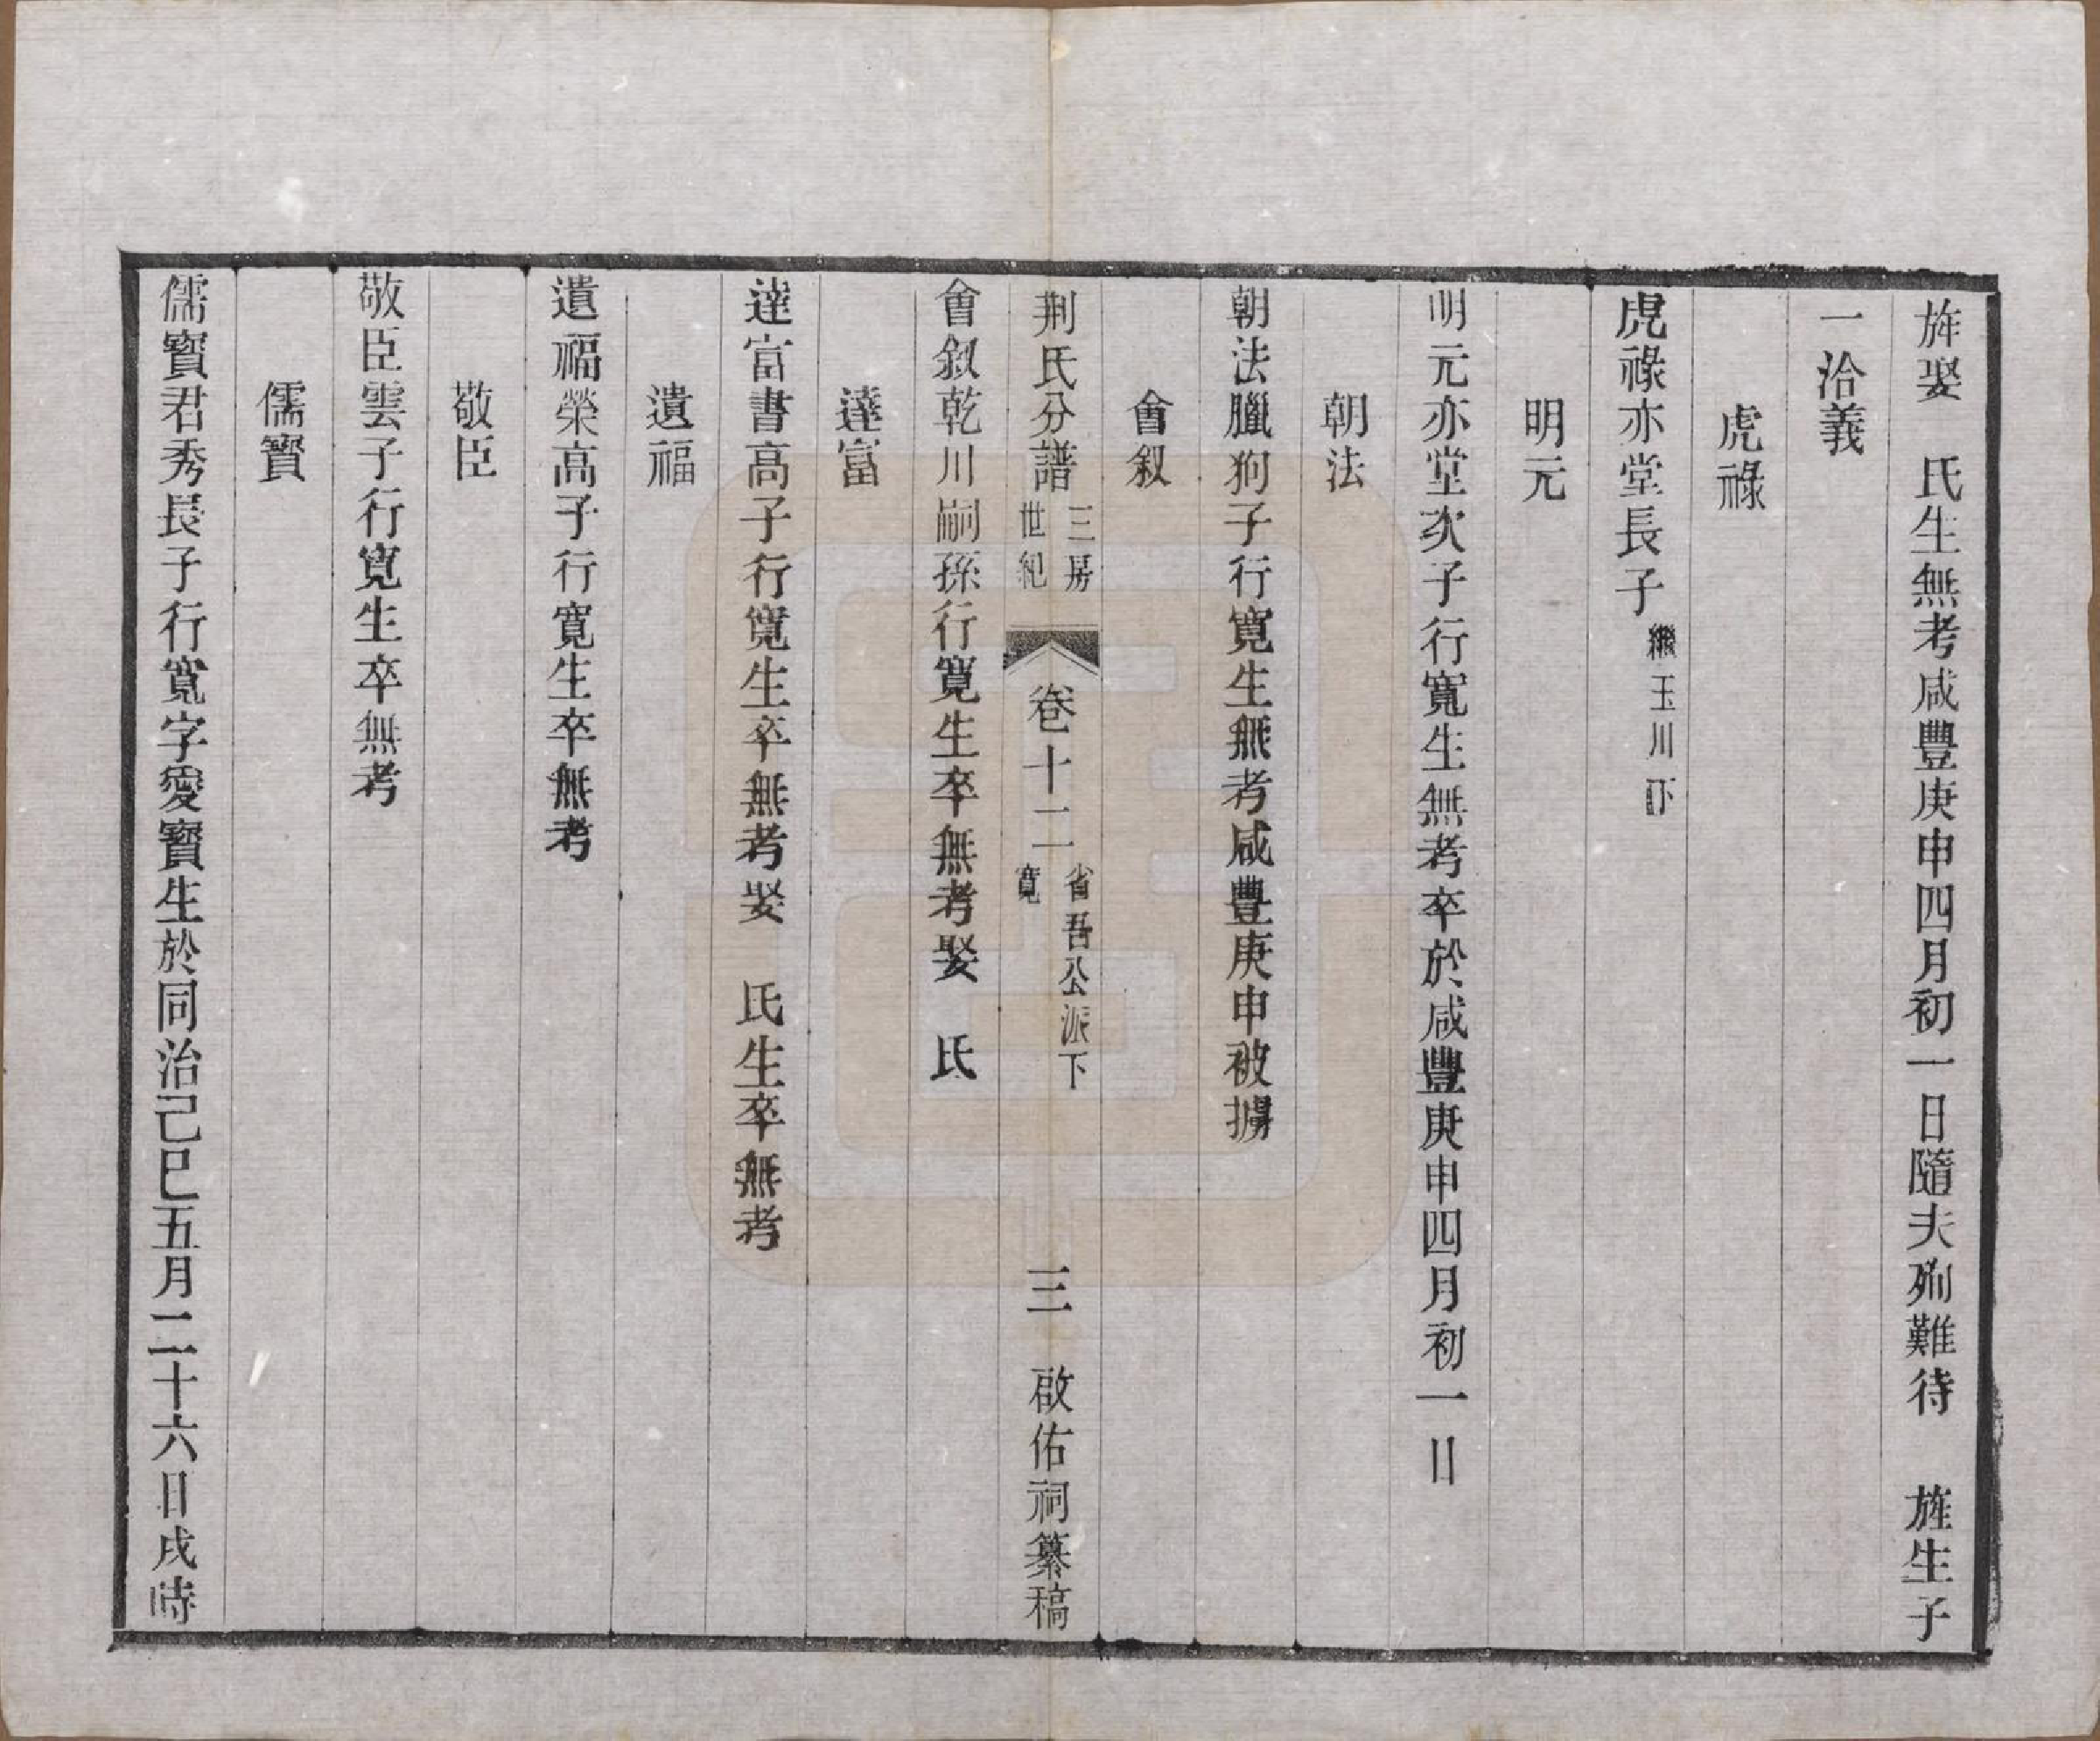 旌娶　氏生無考咸豐庚申四月初一日隨夫殉難待　旌生子
一洽義
虎祿
虎祿亦堂長子繼玉川下
明元
明元亦堂次子行寬生無考卒於咸豐庚申四月初一日
朝法
朝法臘狗子行寬生無考咸豐庚申被擄
會叙
荆氏分譜
三房
世紀
卷十二
省吾公派下
寬
三
啟佑祠纂稿
會叙乾川嗣孫行寬生卒無考娶　氏
達富
達富書高子行寬生卒無考娶　氏生卒無考
遺福
遺福榮高子行寬生卒無考
敬臣
敬臣雲子行寬生卒無考
儒寳
儒寳君秀長子行寬字愛寳生於同治己巳五月二十六日戌時